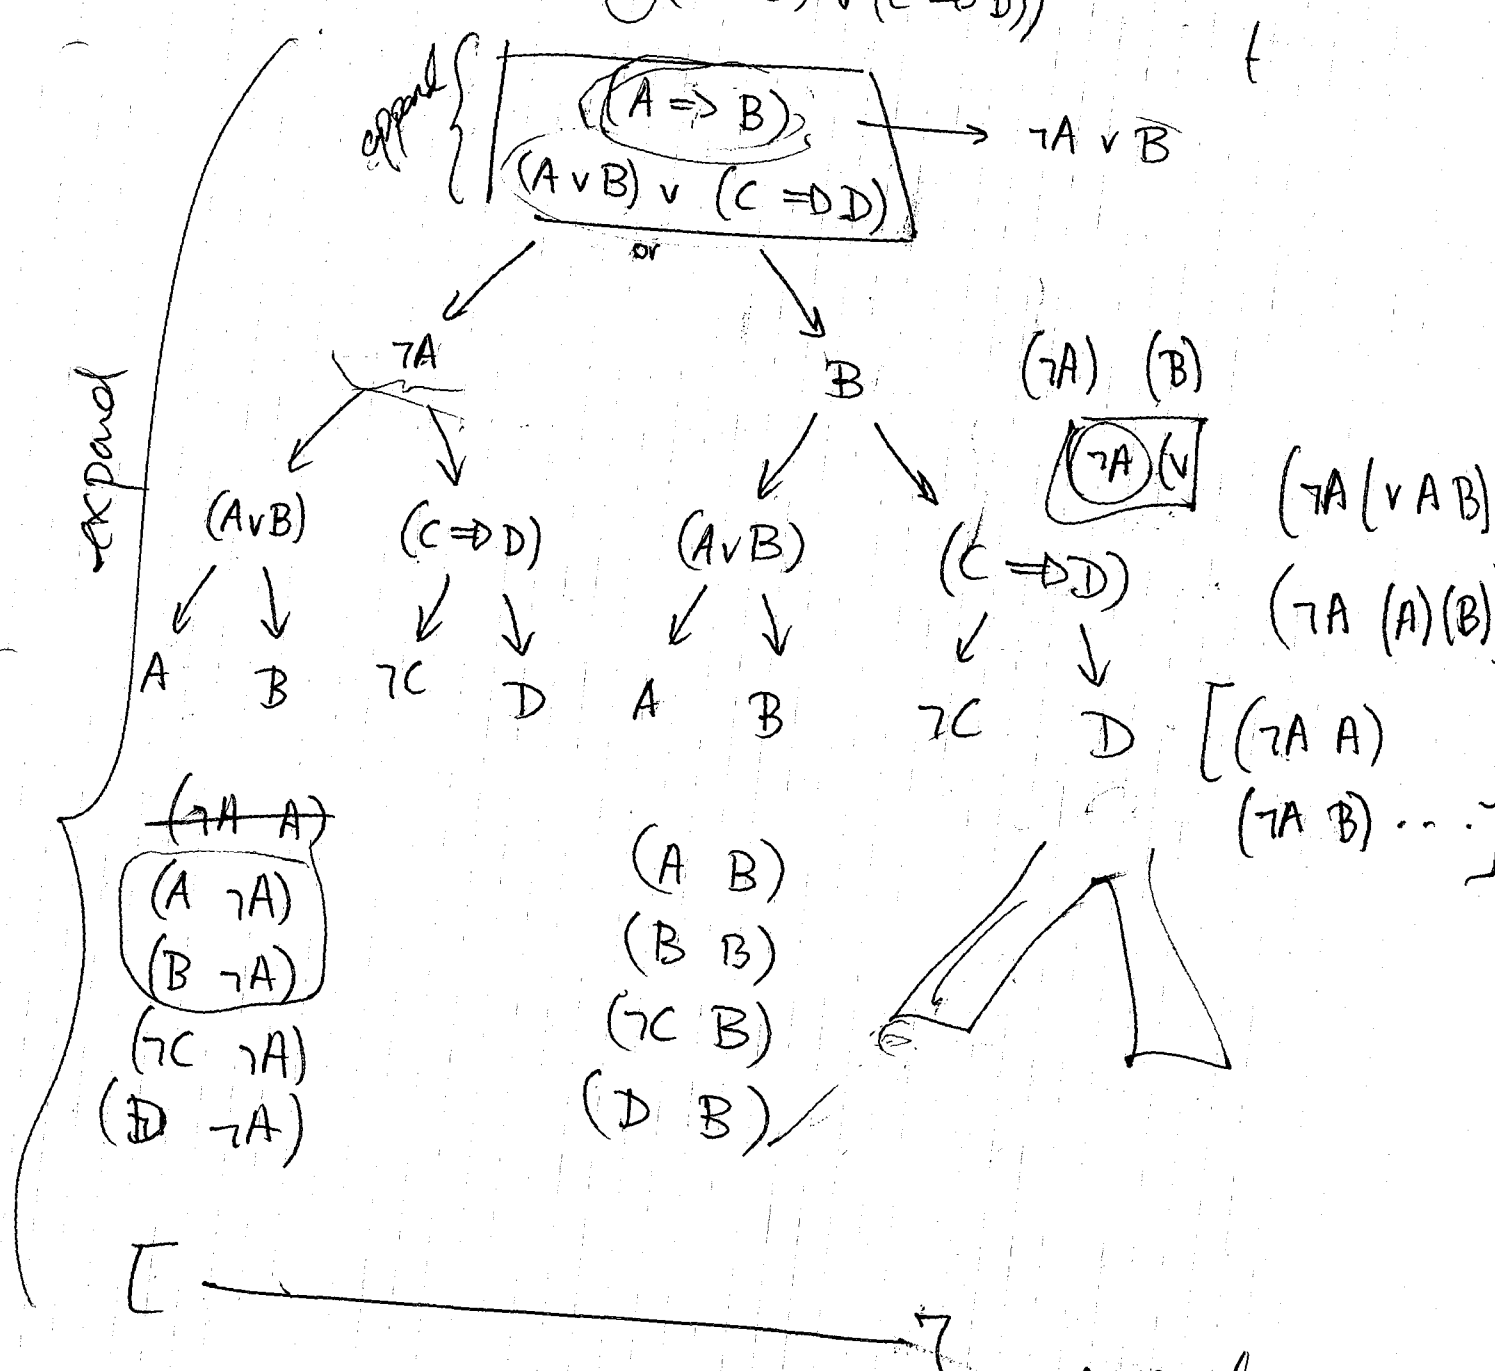 (C => D))
append
(A => B)
→ ¬A ∨ B
(A ∨ B) ∨ (C => D)
or
¬A
B
(¬A) (B)
¬A (∨
expand
(A∨B)
(C => D)
(A∨B)
(C => D)
(¬A (∨ A B)
(¬A (A)(B)
A
B
¬C
D
A
B
¬C
D
[(¬A A)
(¬A B) ....]
(¬A A)
(A ¬A)
(B ¬A)
(¬C ¬A)
(D ¬A)
(A B)
(B B)
(¬C B)
(D B)
[ ]